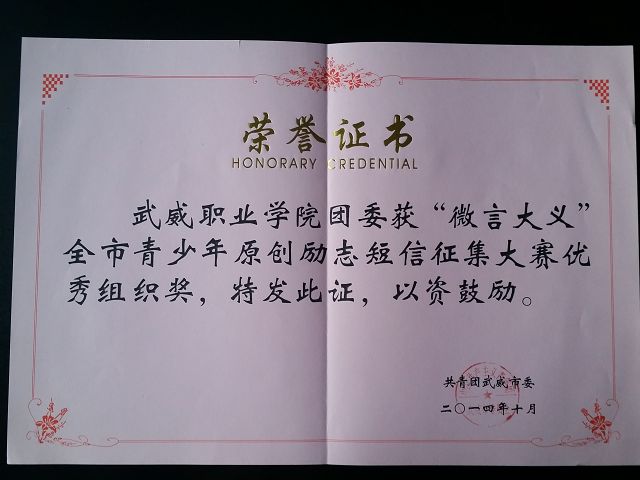 荣誉证书
HONORARY CREDENTIAL
武威职业学院团委获“微言大义”
全市青少年原创励志短信征集大赛优
秀组织奖，特发此证，以资鼓励。
共青团武威市委
二〇一四年十月